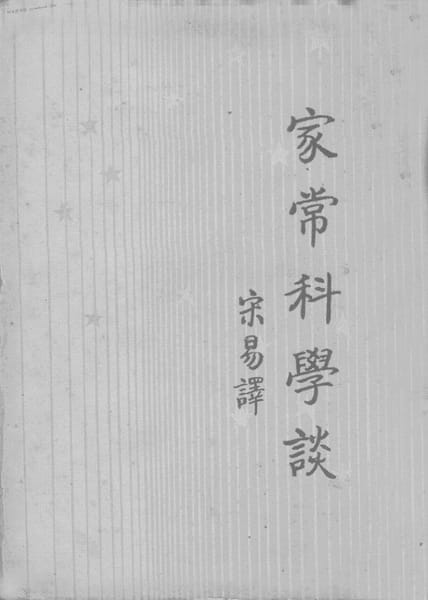 家常科學談
宋易譯